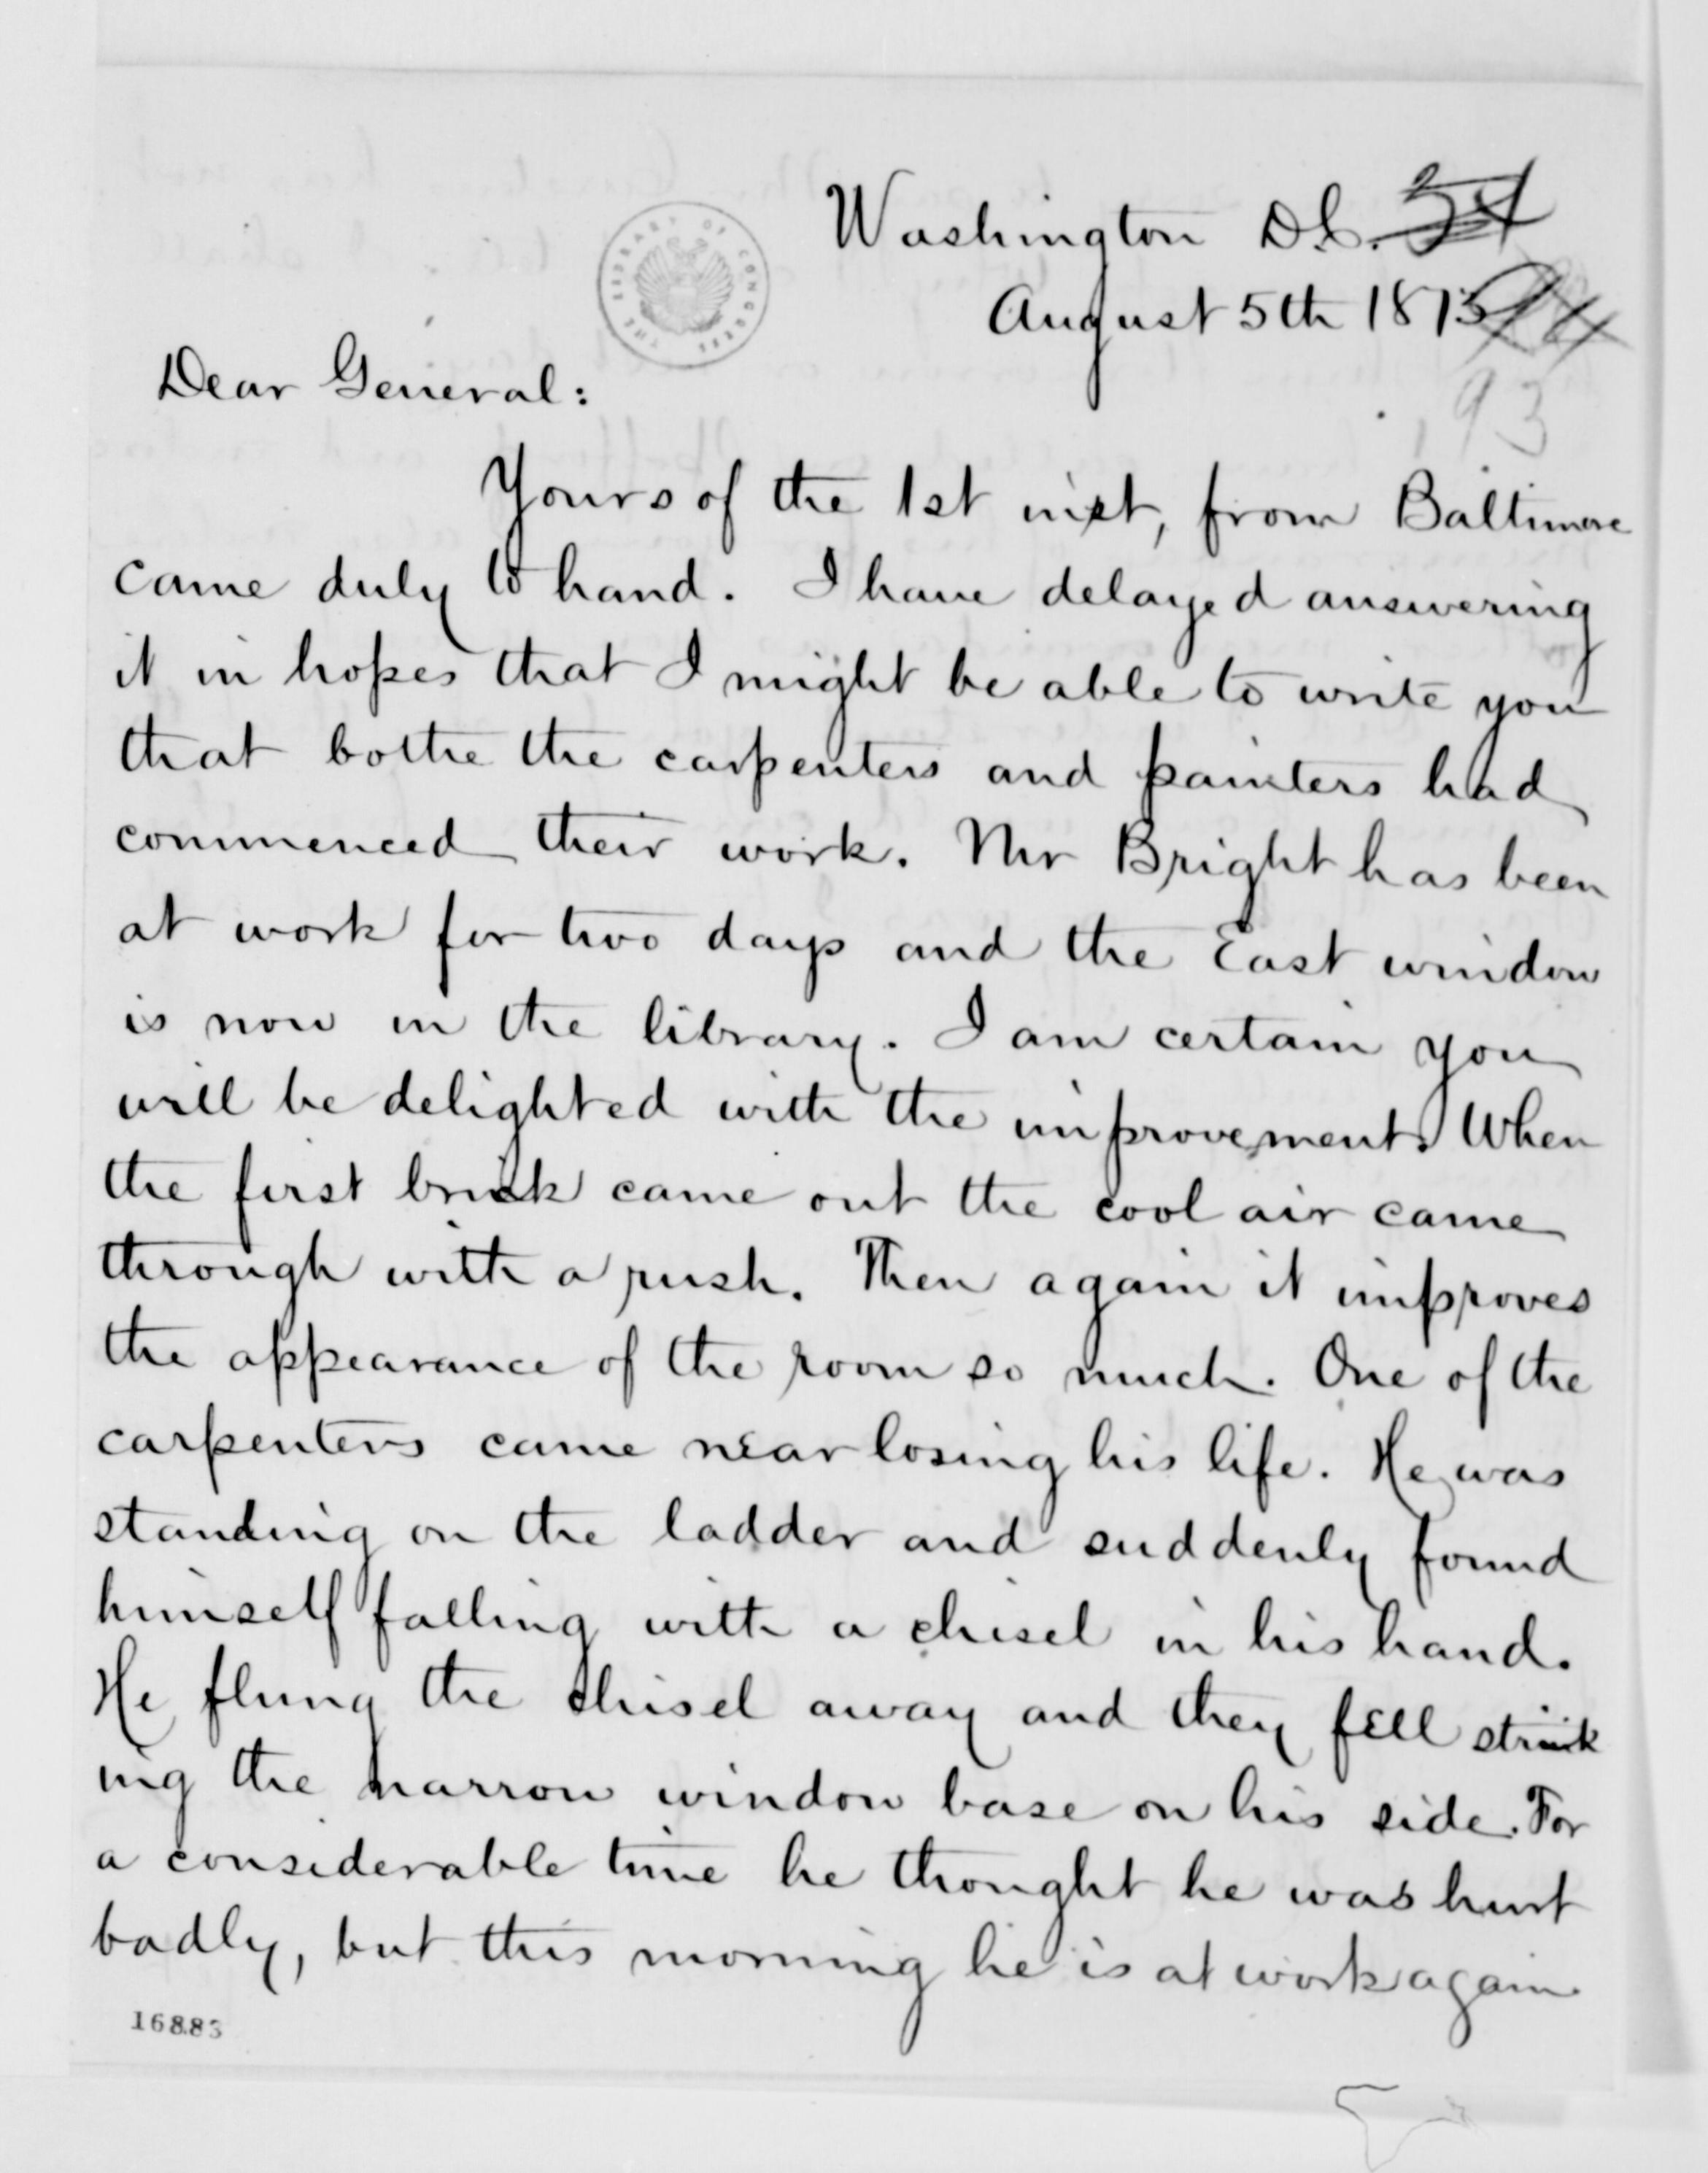 Washington D.C.
August 5th 1875
93
Dear General:
Yours of the 1st inst, from Baltimore
came duly to hand. I have delayed answering
it in hopes that I might be able to write you
that both the carpenters and painters had
commenced their work. Mr Bright has been
at work for two days and the East window
is now in the library. I am certain you
will be delighted with the improvement. When
the first brick came out the cool air came
through with a rush. Then again it improves
the appearance of the room so much. One of the
carpenters came near losing his life. He was
standing on the ladder and suddenly found
himself falling with a chisel in his hand.
He flung the chisel away and they fell strik
ing the narrow window base on his side. For
a considerable time he thought he was hurt
badly, but this morning he is at work again
16883
THE LIBRARY OF CONGRESS